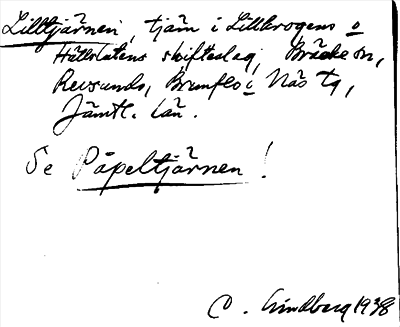 Lilltjärnen, tjärn i Lillkrogens o
Hållstatens skifteslag, Bräcke sn,
Revsunds, Brunflo o Näs tg,
Jämtl. län.
Se Påpeltjärnen!
C. Lindberg 1938